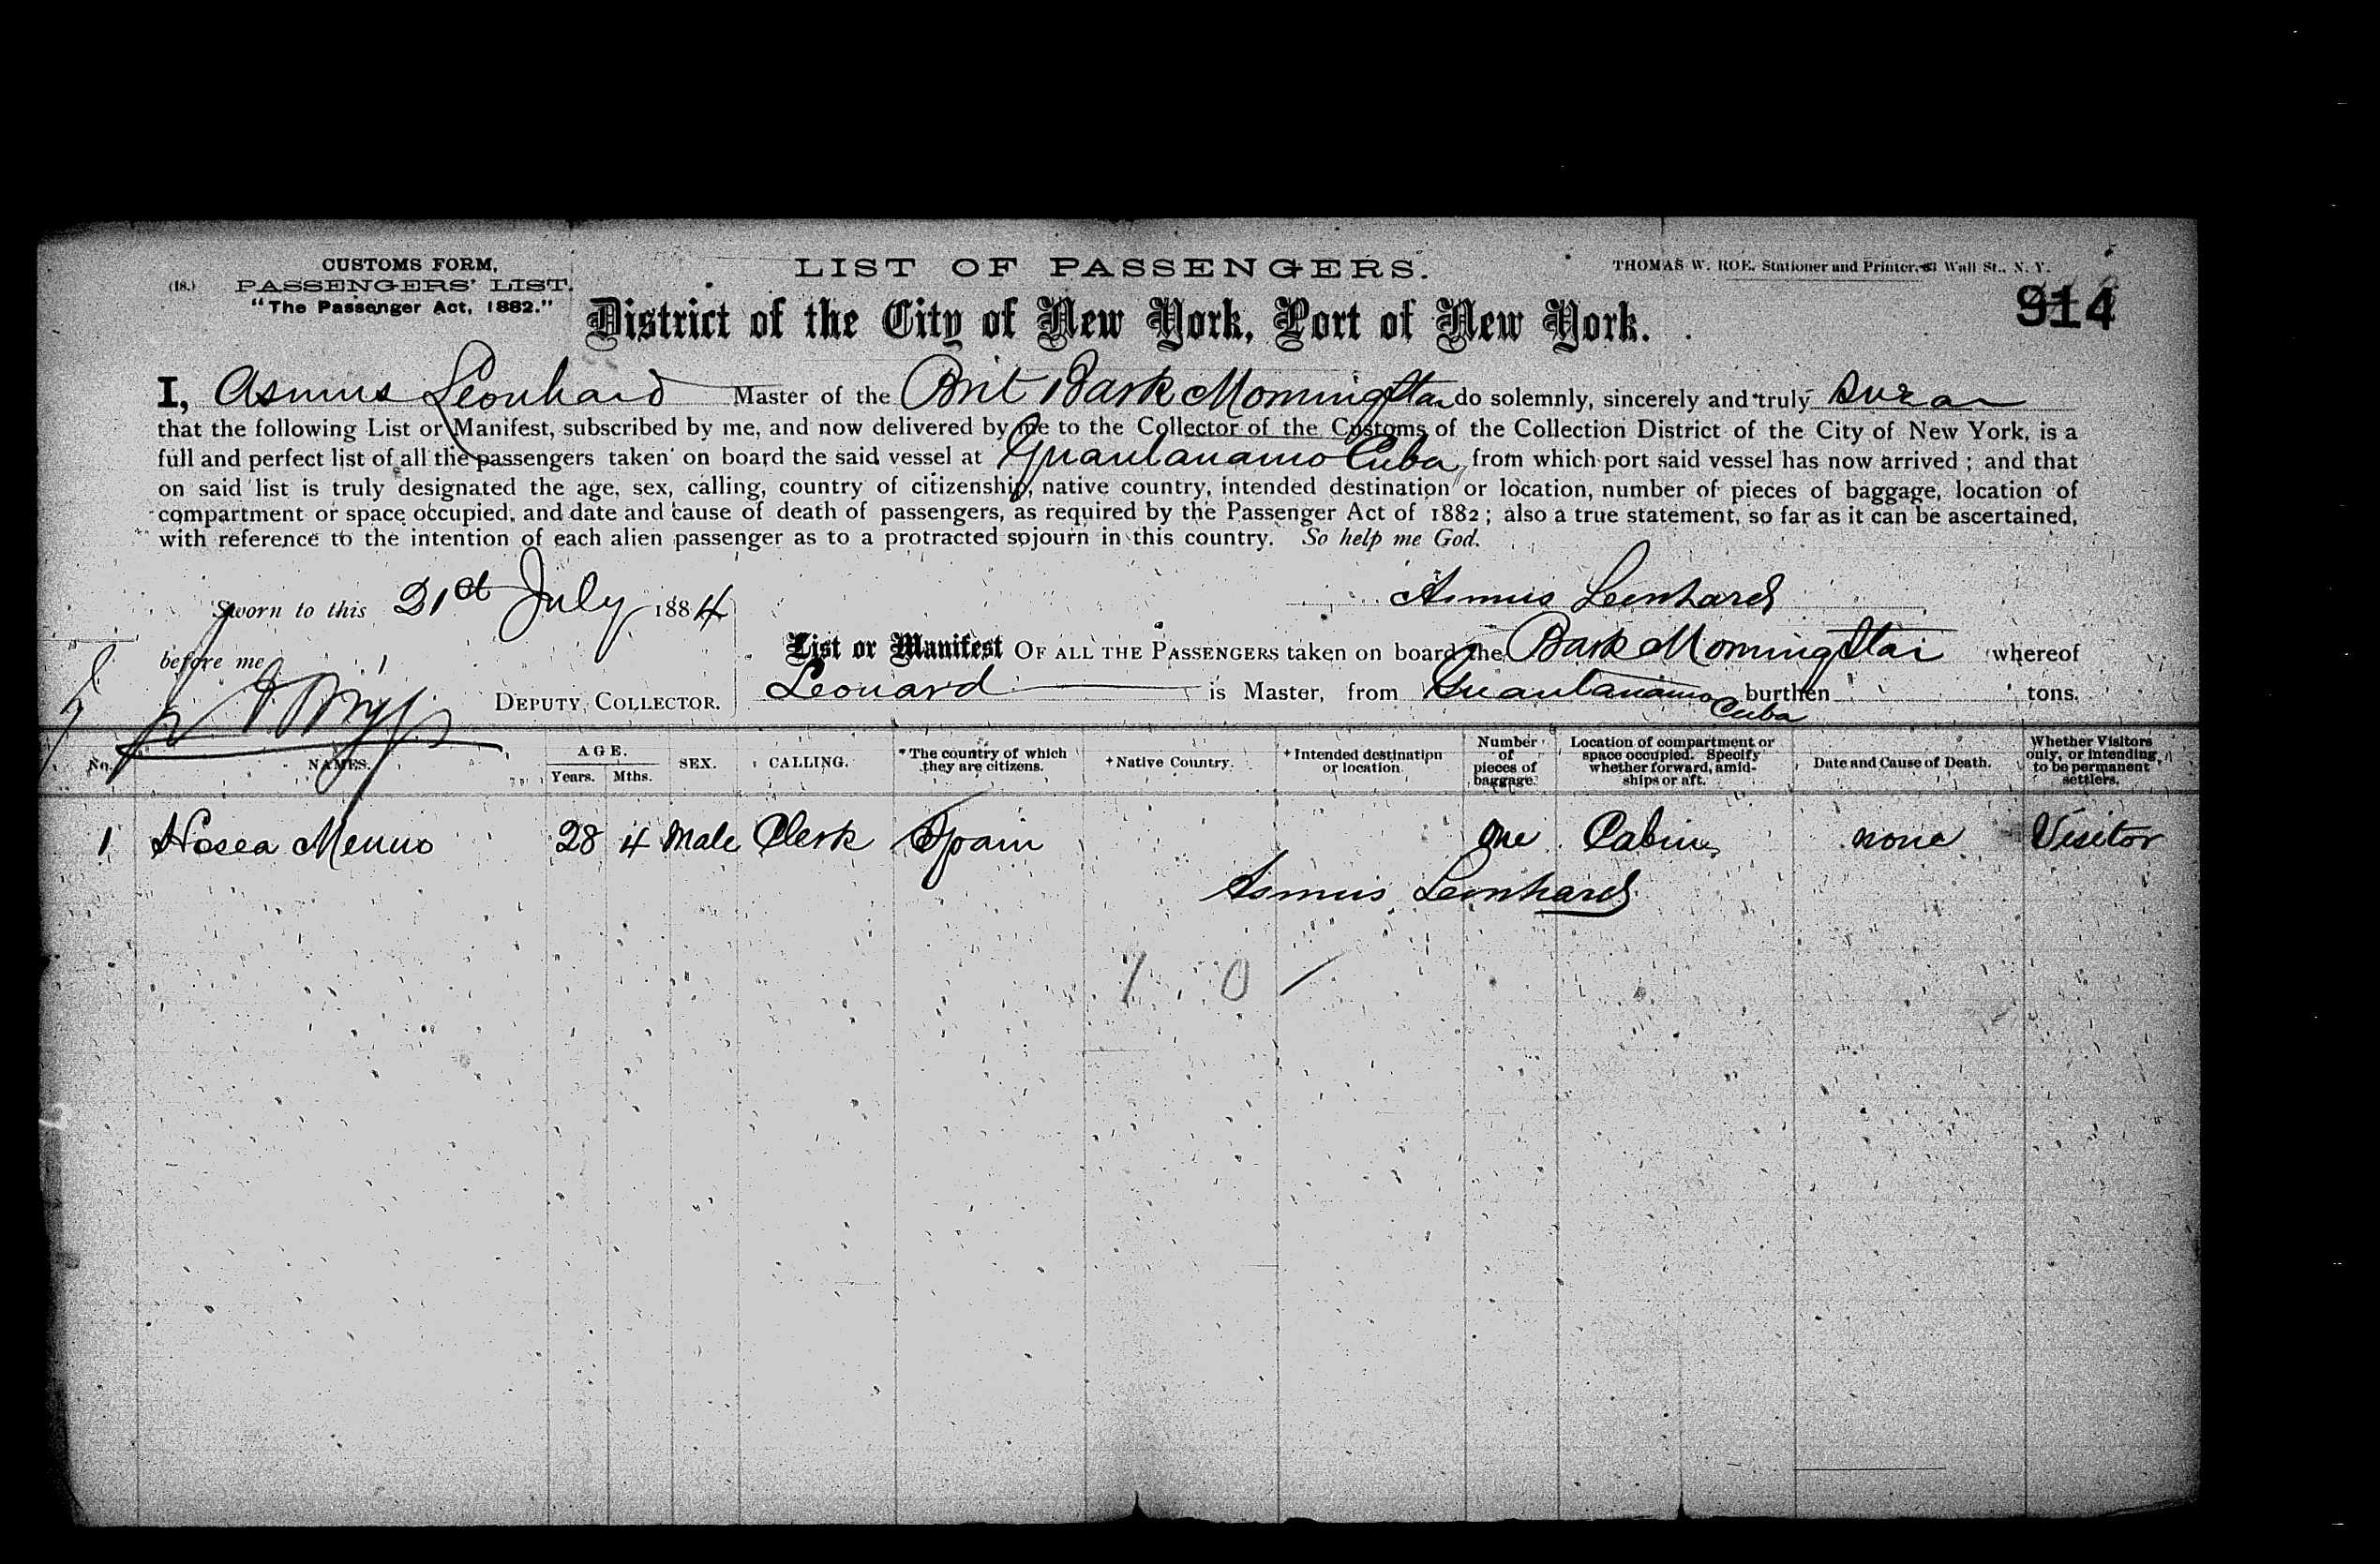 CUSTOMS FORM,
(18.) PASSENGERS' LIST.
"The Passenger Act, 1882."
LIST OF PASSENGERS.
THOMAS W. ROE, Stationer and Printer, Wall St., N. Y.
914
District of the City of New York, Port of New York.
I, Asmus Leonhard Master of the Brit Bark Morning Star do solemnly, sincerely and truly swear
that the following List or Manifest, subscribed by me, and now delivered by me to the Collector of the Customs of the Collection District of the City of New York, is a
full and perfect list of all the passengers taken on board the said vessel at Guantanamo Cuba from which port said vessel has now arrived ; and that
on said list is truly designated the age, sex, calling, country of citizenship, native country, intended destination or location, number of pieces of baggage, location of
compartment or space occupied, and date and cause of death of passengers, as required by the Passenger Act of 1882 ; also a true statement, so far as it can be ascertained,
with reference to the intention of each alien passenger as to a protracted sojourn in this country. So help me God.
Sworn to this 21st July 1884
Asmus Leonhard
before me
List or Manifest OF ALL THE PASSENGERS taken on board the Bark Morning Star whereof
DEPUTY COLLECTOR.
Leonard is Master, from Guantanamo Cuba burthen tons.
No. NAMES. AGE. Years. Mths. SEX. CALLING. * The country of which they are citizens. + Native Country. + Intended destination or location. Number of pieces of baggage. Location of compartment or space occupied. Specify whether forward, amidships or aft. Date and Cause of Death. Whether Visitors only, or intending to be permanent settlers.
1 Hosea 28 4 Male Clerk Spain One Cabin none Visitor
Asmus Leonhard
1 0 /